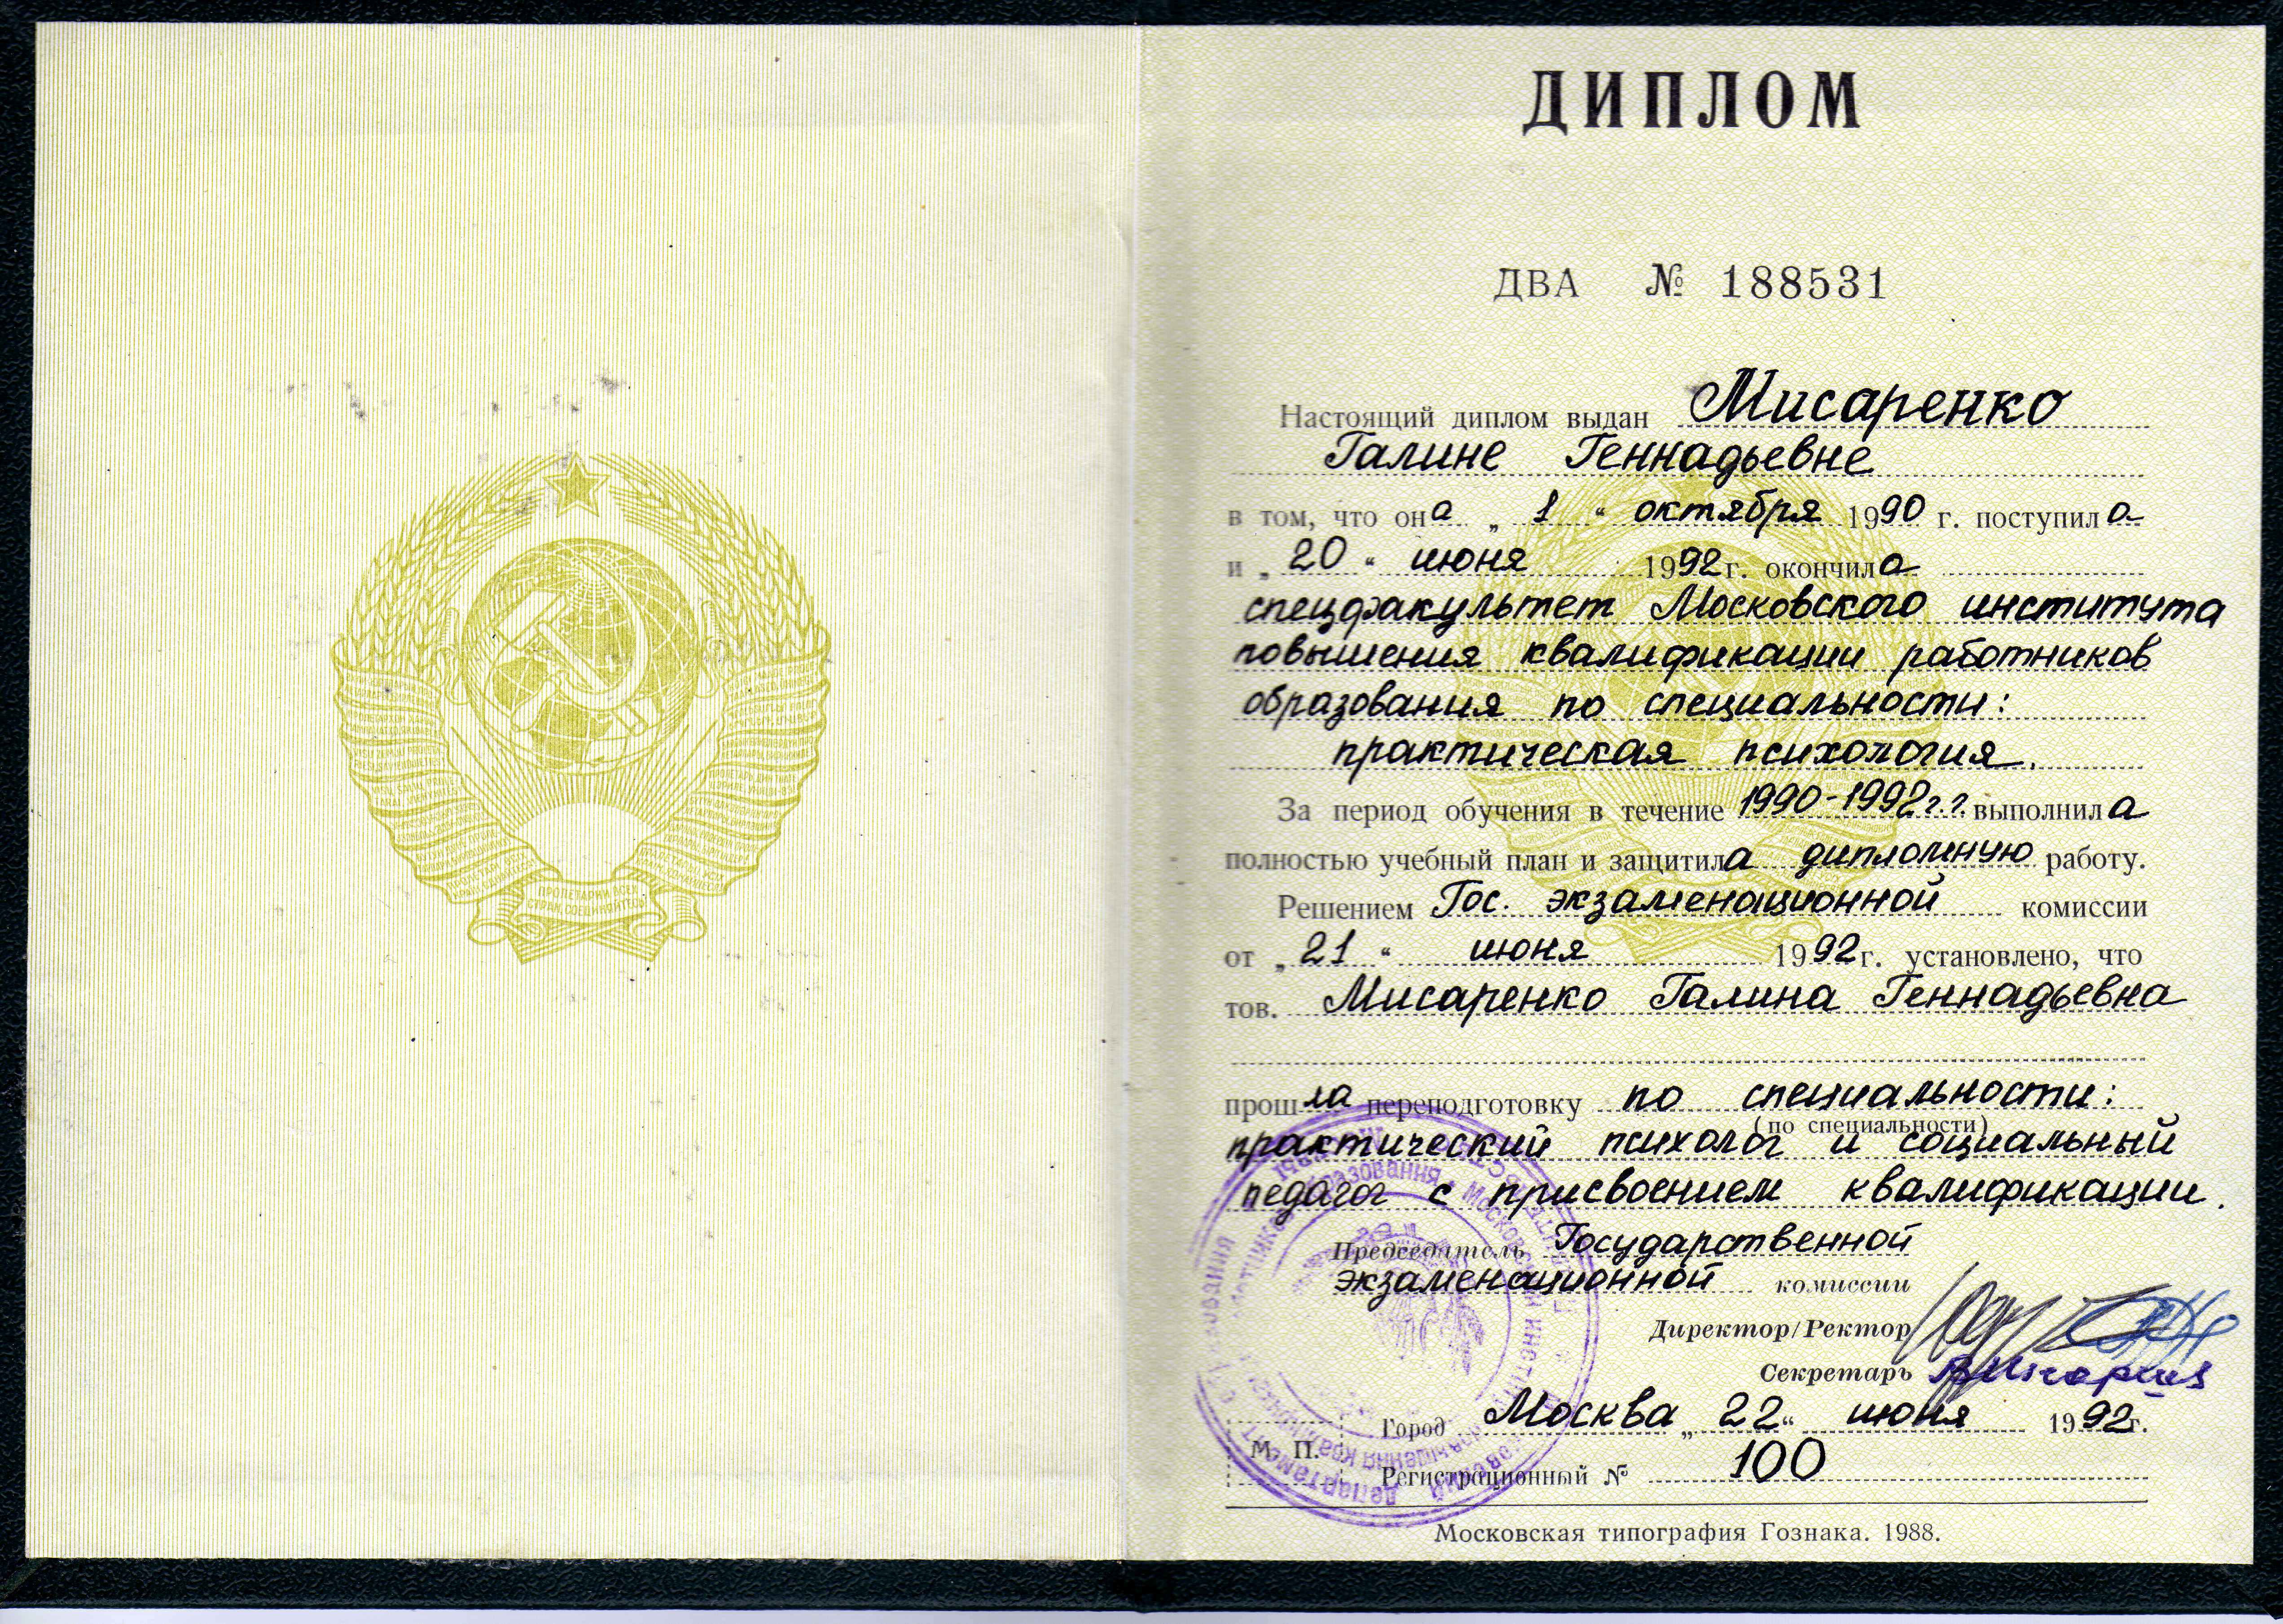 ПРОЛЕТАРИИ ВСЕХ
СТРАН, СОЕДИНЯЙТЕСЬ!
ДИПЛОМ
ДВА № 188531
Настоящий диплом выдан Мисаренко
Галине Геннадьевне
в том, что она „ 1 “ октября 1990 г. поступила
и „ 20 “ июня 1992 г. окончила
спецфакультет Московского института
повышения квалификации работников
образования по специальности:
практическая психология.
За период обучения в течение 1990-1992 г.г. выполнила
полностью учебный план и защитила дипломную работу.
Решением Гос. экзаменационной комиссии
от „ 21 “ июня 1992 г. установлено, что
тов. Мисаренко Галина Геннадьевна
прошла переподготовку по специальности:
(по специальности)
практический психолог и социальный
педагог с присвоением квалификации.
Председатель Государственной
экзаменационной комиссии
Директор/Ректор
Секретарь
Город Москва „ 22 “ июня 1992 г.
М. П.
Регистрационный № 100
Московская типография Гознака. 1988.